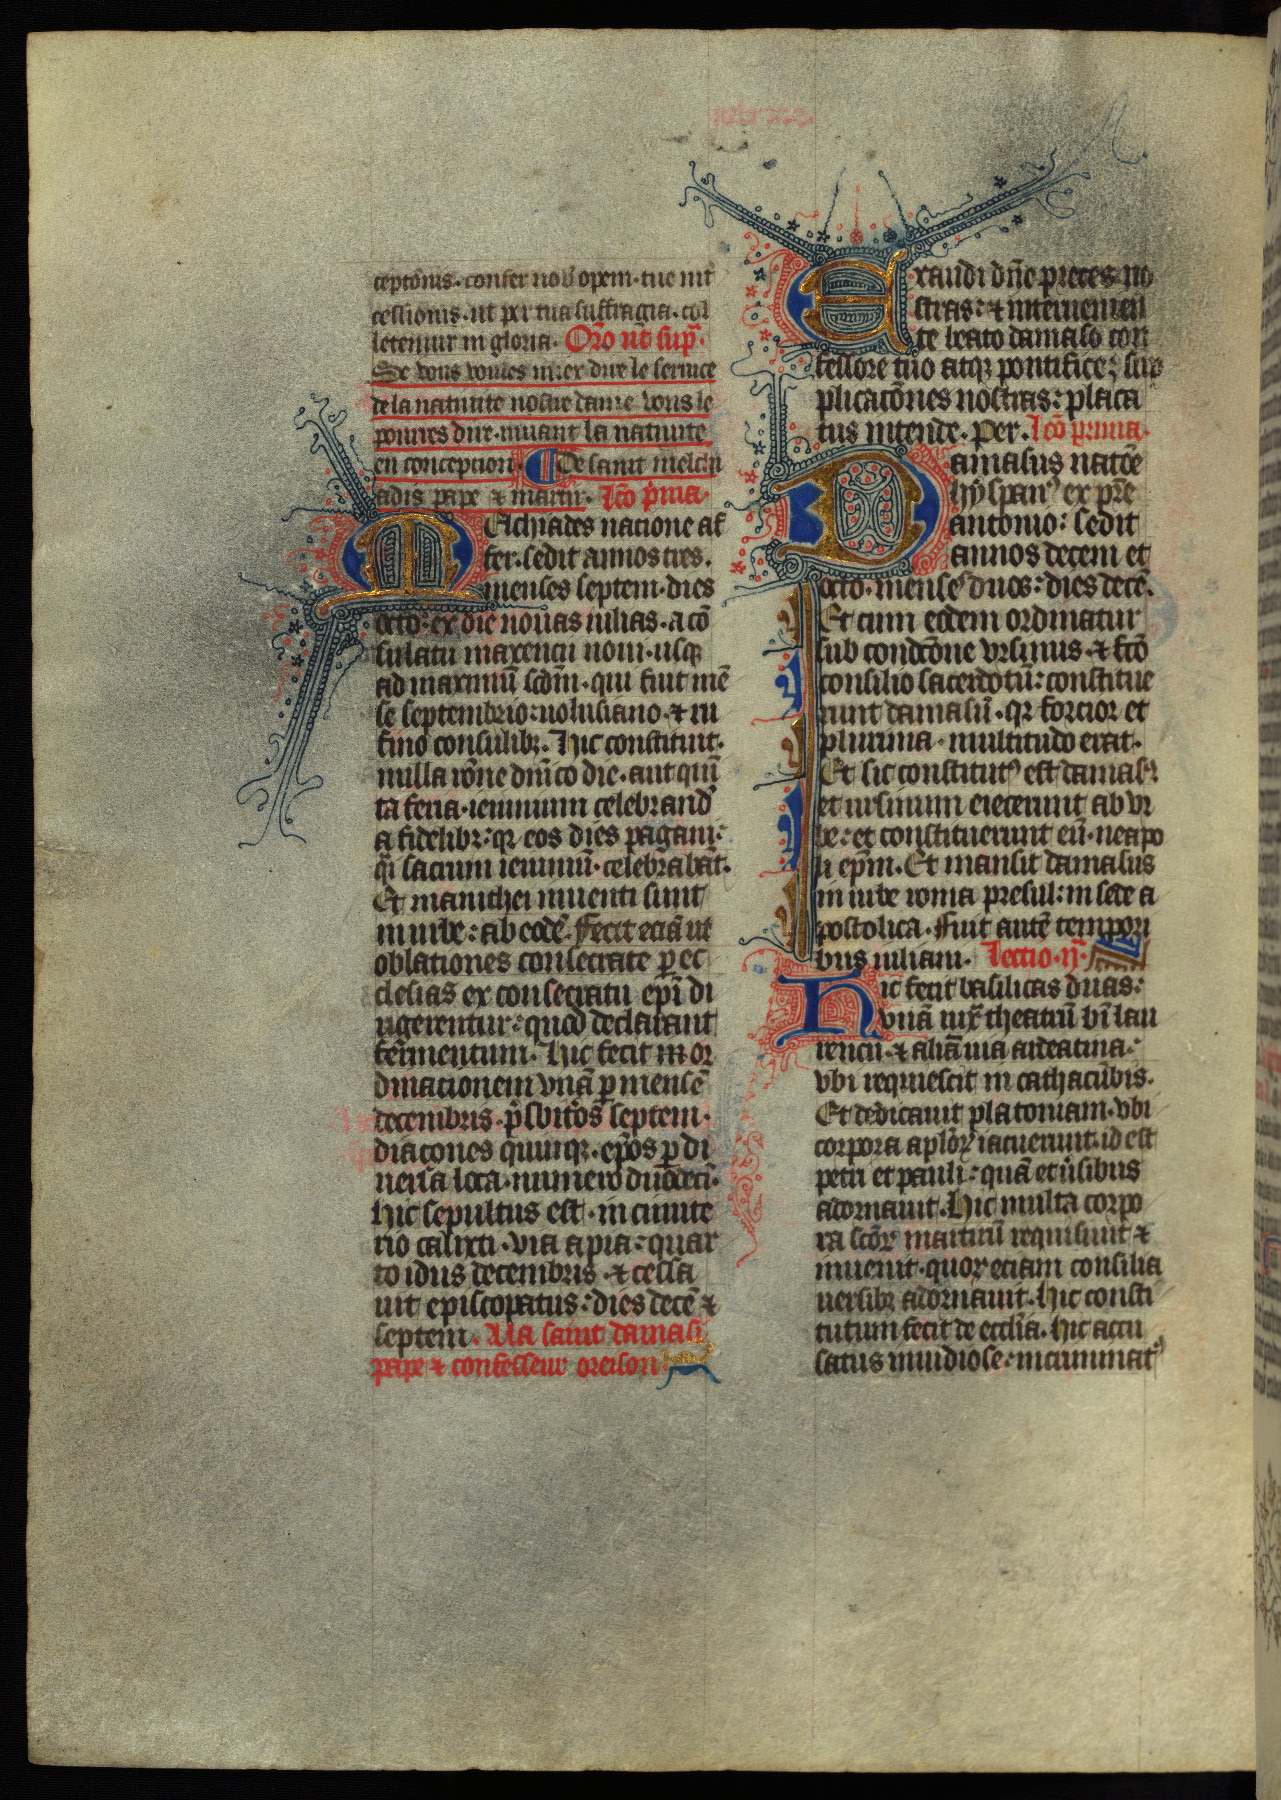 ceptōnis · confer nob̄ opem · tue int̄
cessionis · ut per tua suffragia · col
letemur in gloria · Orō ut sup̄ ·
Se vous voules miex dire le seruice
de la natiuite nostre dame vous le
poures dire · muant la natiuite
en conception · De saint melchi
adis pape & martir · Lcō p̄ma ·
Melchiades natione af
fer · sedit annos tres ·
menses septem · dies
octo : ex die nonas iulias · a cō
sulatu maxencii noui · usq;
ad maximū scdm̄ · qui fuit mē
se septembrio : uolusiano · & ru
fino consulibꝫ · Hic constituit ·
nulla rōne dn̄ico die · aut quī
ta feria · ieiunium celebrand̄
a fidelibꝫ : qꝛ eos dies pagani :
q̄i sacrum ieiuniū · celebrabāt ·
Et manichei inuenti sunt
in urbe : ab eodē · Fecit eciā ut
oblationes consecrate ꝑ ec
clesias ex consecratu ep̄i di
rigerentur : quod declarant
fermentum · Hic fecit in or
dinationem vnā ꝑ mensē
decembris · p̄sbiteros septem ·
diacones quinqꝫ · ep̄os ꝑ di
uersa loca · numero duodecī ·
Hic sepultus est · in cimite
rio calixti · via apia : quar
to idus decembris · & cessa
uit episcopatus : dies decē &
septem · A la saint damasi
pape & confesseur oreison
Exaudi dn̄e preces no
stras : & interuenien
te beato damaso con
fessore tuo atqꝫ pontifice ; sup
plicacōnes nostras : placa
tus intende · Per · Lcō prima ·
Damasus natōe
hyspanꝰ ex pr̄e
antonio : sedit
annos decem et
octo · menseˢ duos : dies decē ·
Et cum eodem ordinatur
sub condcōne vrsinus · & fcō
consilio sacerdotū : constitue
runt damasū · qꝛ forcior et
plurima · multitudo erat ·
Et sic constitutꝰ est damasꝰ
et ursinum eiecerunt ab vr
be : et constituerunt eū · neapo
li ep̄m · Et mansit damasus
in urbe roma presul : in sede a
postolica · Fuit autē tempori
bus iuliani · Lectio · ij ·
Hic fecit basilicas duas :
vnā iuxͣ theatrū bī lau
rencii · & aliā uia ardeatina :
vbi requiescit in cathacūbis ·
Et dedicauit platoniam · vbi
corpora aplōꝝ iacuerunt · id est
petri et pauli : quā et ùsibus
adornauit · Hic multa corpo
ra scōꝝ martirū requisiuit &
inuenit · quoꝝ eciam consilia
uersibꝫ adornauit · Hic consti
tutum fecit de ecclīa · hic accu
satus inuidiose : incriminatꝰ